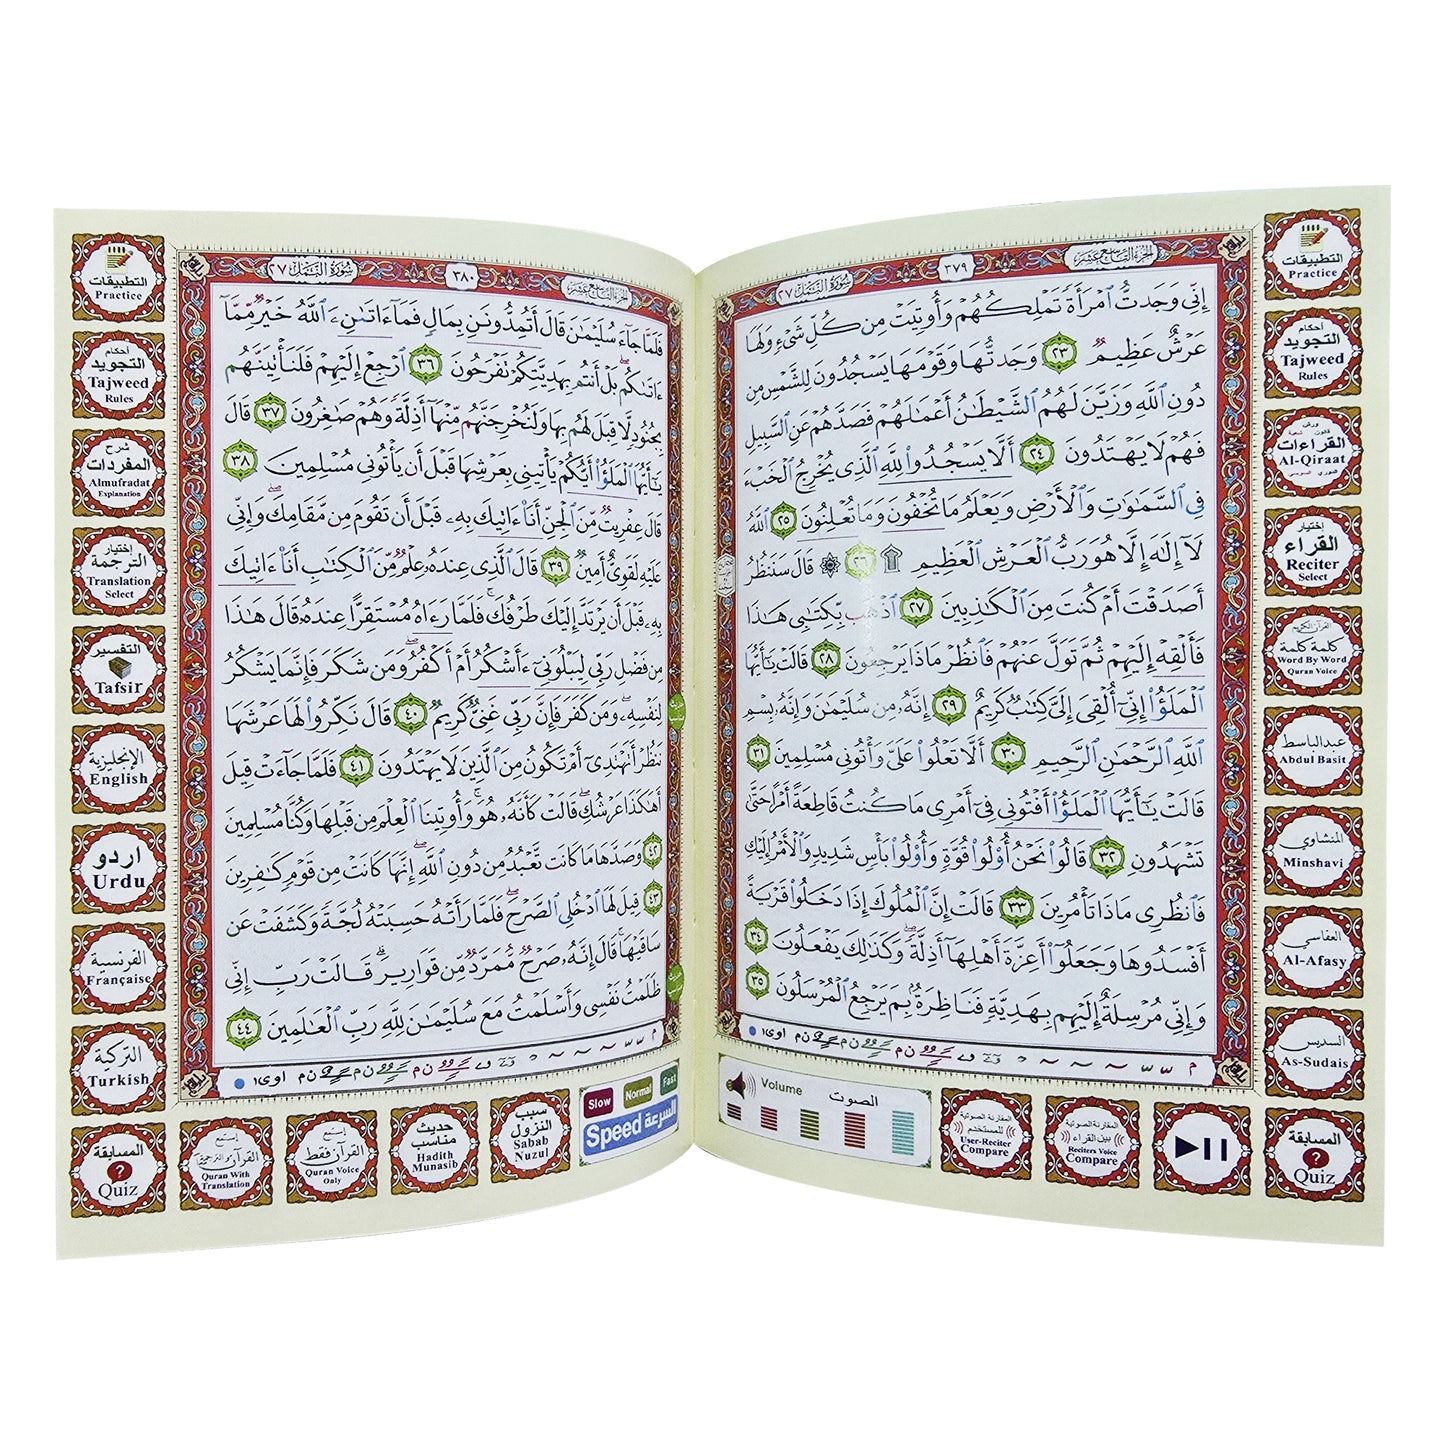 الجزء التاسع عشر
٣٧٩
سورة النمل ٢٧
إِنِّي وَجَدتُّ ٱمْرَأَةً تَمْلِكُهُمْ وَأُوتِيَتْ مِن كُلِّ شَيْءٍ وَلَهَا
عَرْشٌ عَظِيمٌ ٢٣ وَجَدتُّهَا وَقَوْمَهَا يَسْجُدُونَ لِلشَّمْسِ مِن
دُونِ ٱللَّهِ وَزَيَّنَ لَهُمُ ٱلشَّيْطَٰنُ أَعْمَٰلَهُمْ فَصَدَّهُمْ عَنِ ٱلسَّبِيلِ
فَهُمْ لَا يَهْتَدُونَ ٢٤ أَلَّا يَسْجُدُوا۟ لِلَّهِ ٱلَّذِي يُخْرِجُ ٱلْخَبْءَ
فِي ٱلسَّمَٰوَٰتِ وَٱلْأَرْضِ وَيَعْلَمُ مَا تُخْفُونَ وَمَا تُعْلِنُونَ ٢٥ ٱللَّهُ
لَآ إِلَٰهَ إِلَّا هُوَ رَبُّ ٱلْعَرْشِ ٱلْعَظِيمِ ۩ ٢٦ ۞ قَالَ سَنَنظُرُ
أَصَدَقْتَ أَمْ كُنتَ مِنَ ٱلْكَٰذِبِينَ ٢٧ ٱذْهَب بِّكِتَٰبِي هَٰذَا
فَأَلْقِهْ إِلَيْهِمْ ثُمَّ تَوَلَّ عَنْهُمْ فَٱنظُرْ مَاذَا يَرْجِعُونَ ٢٨ قَالَتْ يَٰٓأَيُّهَا
ٱلْمَلَؤُا۟ إِنِّيٓ أُلْقِيَ إِلَيَّ كِتَٰبٌ كَرِيمٌ ٢٩ إِنَّهُۥ مِن سُلَيْمَٰنَ وَإِنَّهُۥ بِسْمِ
ٱللَّهِ ٱلرَّحْمَٰنِ ٱلرَّحِيمِ ٣٠ أَلَّا تَعْلُوا۟ عَلَيَّ وَأْتُونِي مُسْلِمِينَ ٣١
قَالَتْ يَٰٓأَيُّهَا ٱلْمَلَؤُا۟ أَفْتُونِي فِيٓ أَمْرِي مَا كُنتُ قَاطِعَةً أَمْرًا حَتَّىٰ
تَشْهَدُونِ ٣٢ قَالُوا۟ نَحْنُ أُو۟لُوا۟ قُوَّةٍ وَأُو۟لُوا۟ بَأْسٍ شَدِيدٍ وَٱلْأَمْرُ إِلَيْكِ
فَٱنظُرِي مَاذَا تَأْمُرِينَ ٣٣ قَالَتْ إِنَّ ٱلْمُلُوكَ إِذَا دَخَلُوا۟ قَرْيَةً
أَفْسَدُوهَا وَجَعَلُوٓا۟ أَعِزَّةَ أَهْلِهَآ أَذِلَّةً ۖ وَكَذَٰلِكَ يَفْعَلُونَ ٣٤
وَإِنِّي مُرْسِلَةٌ إِلَيْهِم بِهَدِيَّةٍ فَنَاظِرَةٌۢ بِمَ يَرْجِعُ ٱلْمُرْسَلُونَ ٣٥
الجزء التاسع عشر
٣٨٠
سورة النمل ٢٧
فَلَمَّا جَآءَ سُلَيْمَٰنَ قَالَ أَتُمِدُّونَنِ بِمَالٍ فَمَآ ءَاتَىٰنِۦَ ٱللَّهُ خَيْرٌ مِّمَّآ
ءَاتَىٰكُم بَلْ أَنتُم بِهَدِيَّتِكُمْ تَفْرَحُونَ ٣٦ ٱرْجِعْ إِلَيْهِمْ فَلَنَأْتِيَنَّهُم
بِجُنُودٍ لَّا قِبَلَ لَهُم بِهَا وَلَنُخْرِجَنَّهُم مِّنْهَآ أَذِلَّةً وَهُمْ صَٰغِرُونَ ٣٧ قَالَ
يَٰٓأَيُّهَا ٱلْمَلَؤُا۟ أَيُّكُمْ يَأْتِينِي بِعَرْشِهَا قَبْلَ أَن يَأْتُونِي مُسْلِمِينَ ٣٨
قَالَ عِفْرِيتٌ مِّنَ ٱلْجِنِّ أَنَا۠ ءَاتِيكَ بِهِۦ قَبْلَ أَن تَقُومَ مِن مَّقَامِكَ ۖ وَإِنِّي
عَلَيْهِ لَقَوِيٌّ أَمِينٌ ٣٩ قَالَ ٱلَّذِي عِندَهُۥ عِلْمٌ مِّنَ ٱلْكِتَٰبِ أَنَا۠ ءَاتِيكَ
بِهِۦ قَبْلَ أَن يَرْتَدَّ إِلَيْكَ طَرْفُكَ ۚ فَلَمَّا رَءَاهُ مُسْتَقِرًّا عِندَهُۥ قَالَ هَٰذَا
مِن فَضْلِ رَبِّي لِيَبْلُوَنِيٓ ءَأَشْكُرُ أَمْ أَكْفُرُ ۖ وَمَن شَكَرَ فَإِنَّمَا يَشْكُرُ
لِنَفْسِهِۦ ۖ وَمَن كَفَرَ فَإِنَّ رَبِّي غَنِيٌّ كَرِيمٌ ٤٠ قَالَ نَكِّرُوا۟ لَهَا عَرْشَهَا
نَنظُرْ أَتَهْتَدِيٓ أَمْ تَكُونُ مِنَ ٱلَّذِينَ لَا يَهْتَدُونَ ٤١ فَلَمَّا جَآءَتْ قِيلَ
أَهَٰكَذَا عَرْشُكِ ۖ قَالَتْ كَأَنَّهُۥ هُوَ ۚ وَأُوتِينَا ٱلْعِلْمَ مِن قَبْلِهَا وَكُنَّا مُسْلِمِينَ
٤٢ وَصَدَّهَا مَا كَانَت تَّعْبُدُ مِن دُونِ ٱللَّهِ ۖ إِنَّهَا كَانَتْ مِن قَوْمٍ كَٰفِرِينَ
٤٣ قِيلَ لَهَا ٱدْخُلِي ٱلصَّرْحَ ۖ فَلَمَّا رَأَتْهُ حَسِبَتْهُ لُجَّةً وَكَشَفَتْ عَن
سَاقَيْهَا ۚ قَالَ إِنَّهُۥ صَرْحٌ مُّمَرَّدٌ مِّن قَوَارِيرَ ۗ قَالَتْ رَبِّ إِنِّي
ظَلَمْتُ نَفْسِي وَأَسْلَمْتُ مَعَ سُلَيْمَٰنَ لِلَّهِ رَبِّ ٱلْعَٰلَمِينَ ٤٤
التطبيقات
Practice
أحكام
التجويد
Tajweed
Rules
ورش
قالون شعبة
القراءات
Al-Qiraat
الدوري السوسي
إختيار
القراء
Reciter
Select
القرآن الكريم
كلمة كلمة
Word By Word
Quran Voice
عبدالباسط
Abdul Basit
المنشاوي
Minshavi
العفاسي
Al-Afasy
السديس
As-Sudais
المسابقة
Quiz
المقارنة الصوتية
بين القراء
Reciters Voice
Compare
المقارنة الصوتية
للمستخدم
User-Reciter
Compare
Volume الصوت
التطبيقات
Practice
أحكام
التجويد
Tajweed
Rules
شرح
المفردات
Almufradat
Explanation
إختيار
الترجمة
Translation
Select
التفسير
Tafsir
الإنجليزية
English
اردو
Urdu
الفرنسية
Française
التركية
Turkish
المسابقة
Quiz
إستمع
القرآن والترجمة
Quran With
Translation
إستمع
القرآن فقط
Quran Voice
Only
حديث
مناسب
Hadith
Munasib
سبب
النزول
Sabab
Nuzul
Slow Normal Fast
Speed السرعة